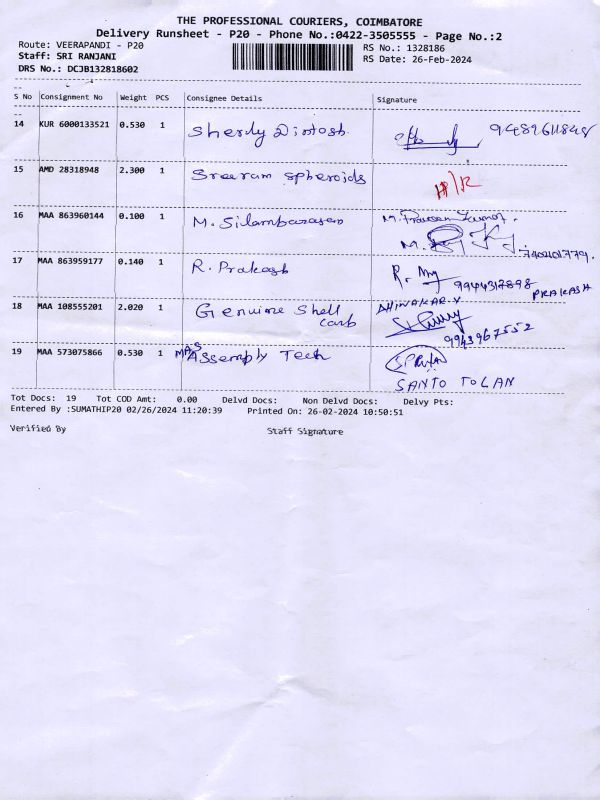 THE PROFESSIONAL COURIERS, COIMBATORE
Delivery Runsheet - P20 - Phone No.:0422-3505555 - Page No.:2
Route: VEERAPANDI - P20 RS No.: 1328186
Staff: SRI RANJANI RS Date: 26-Feb-2024
DRS No.: DCJB132818602
S No Consignment No Weight PCS Consignee Details Signature
14 KUR 6000133521 0.530 1
15 AMD 28318948 2.300 1 Sreeram spheroids
16 MAA 863960144 0.100 1 M. Silambarasan
17 MAA 863959177 0.140 1 R. Prakash R. 9944317898 PRAKASH
18 MAA 108555201 2.020 1 Genuine Shell DHINAKAR.V
Carb 9943967552
19 MAA 573075866 0.530 1 MAS Assembly Tech
SANTO TOLAN
Tot Docs: 19 Tot COD Amt: 0.00 Delvd Docs: Non Delvd Docs: Delvy Pts:
Entered By :SUMATHIP20 02/26/2024 11:20:39 Printed On: 26-02-2024 10:50:51
Verified By Staff Signature